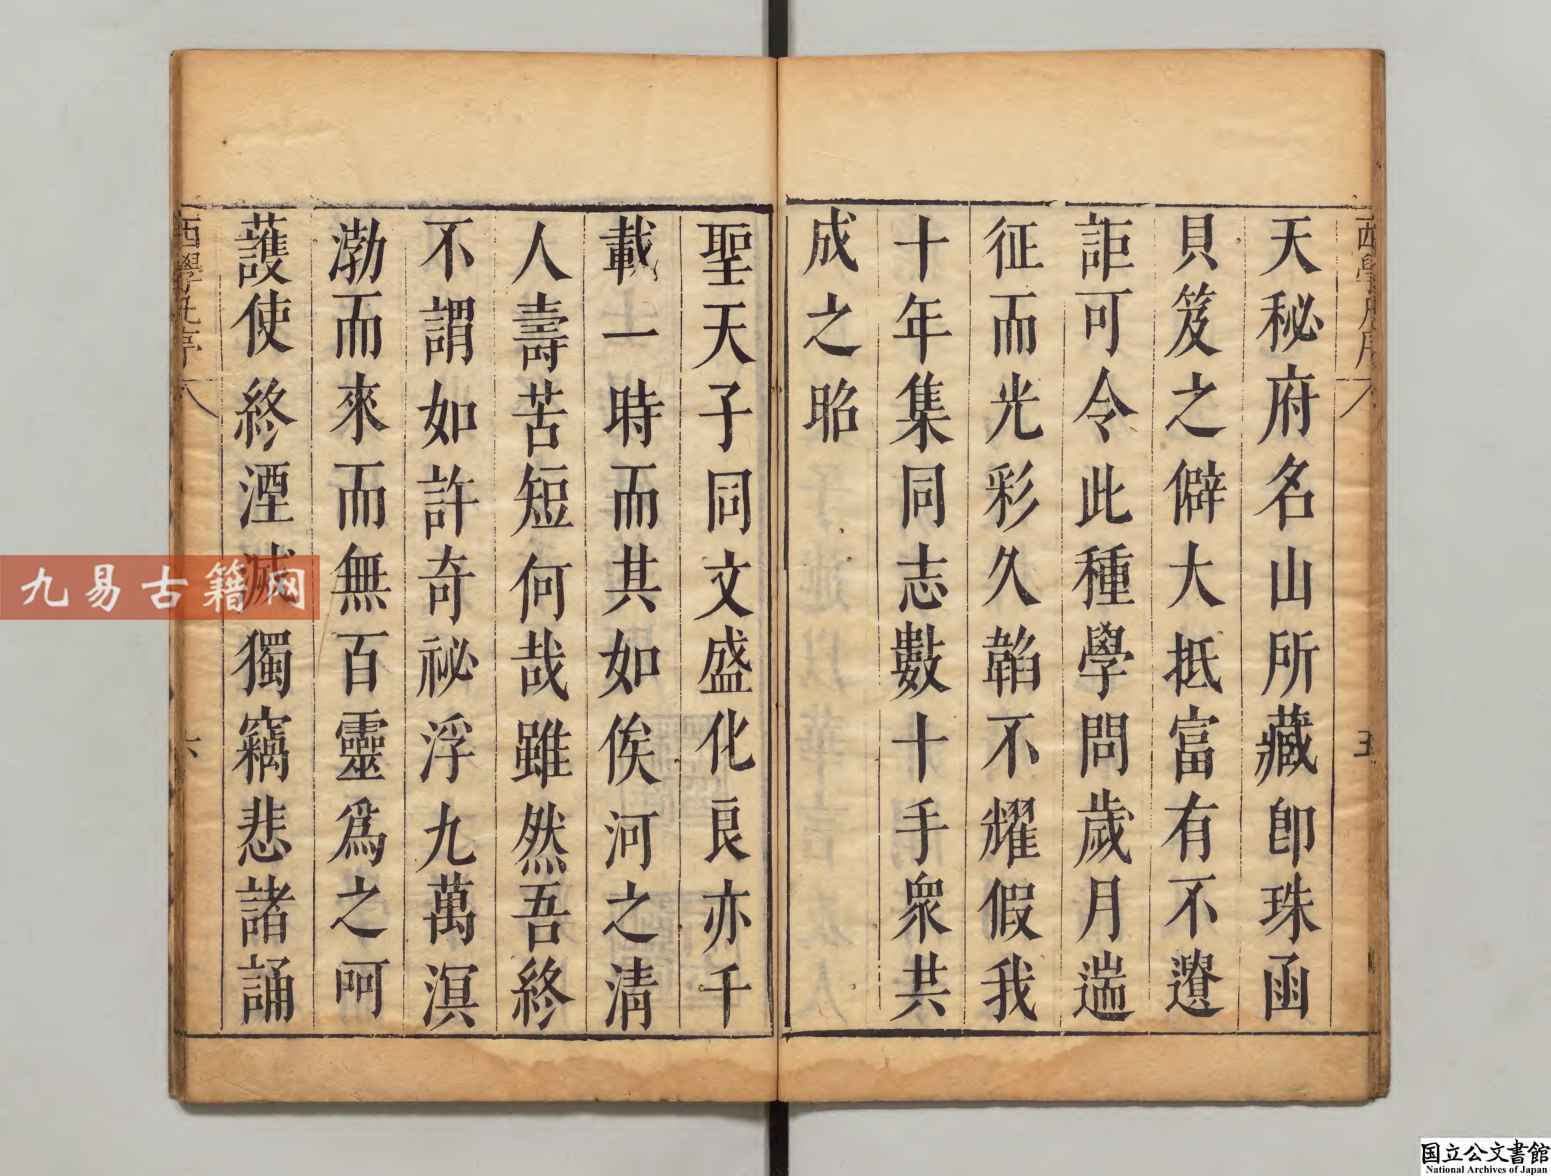 天秘府名山所藏卽珠函
貝笈之僻大抵富有不遼
詎可令此種學問歲月遄
征而光彩久韜不耀假我
十年集同志數十手衆共
成之昭
聖天子同文盛化良亦千
載一時而其如俟河之淸
人壽苦短何哉雖然吾終
不謂如許奇祕浮九萬溟
渤而來而無百靈爲之呵
護使終湮滅獨竊悲諸誦
五
六
九易古籍网
国立公文書館
National Archives of Japan